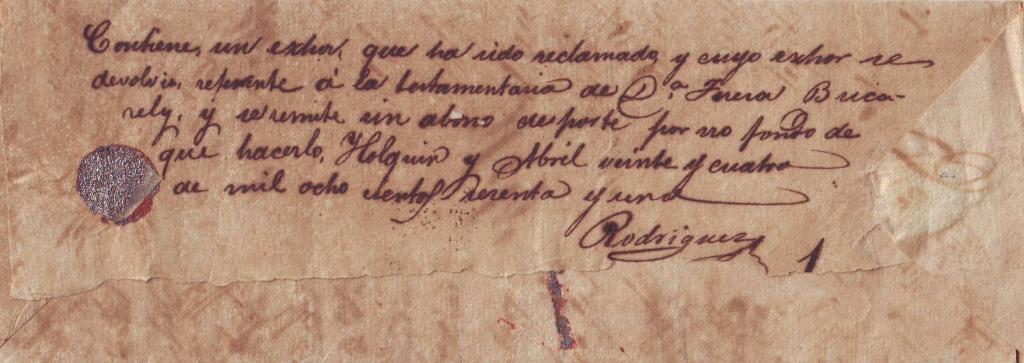 Contiene, un exhor. que ha sido reclamado, y cuyo exhor se
devolvio, referente á la testamentaria de D.ª Teresa Buca-
rely, y se remite sin abono de porte por no fondo de
que hacerlo, Holguin y Abril veinte y cuatro
de mil ocho cientos sesenta y uno
Rodriguez